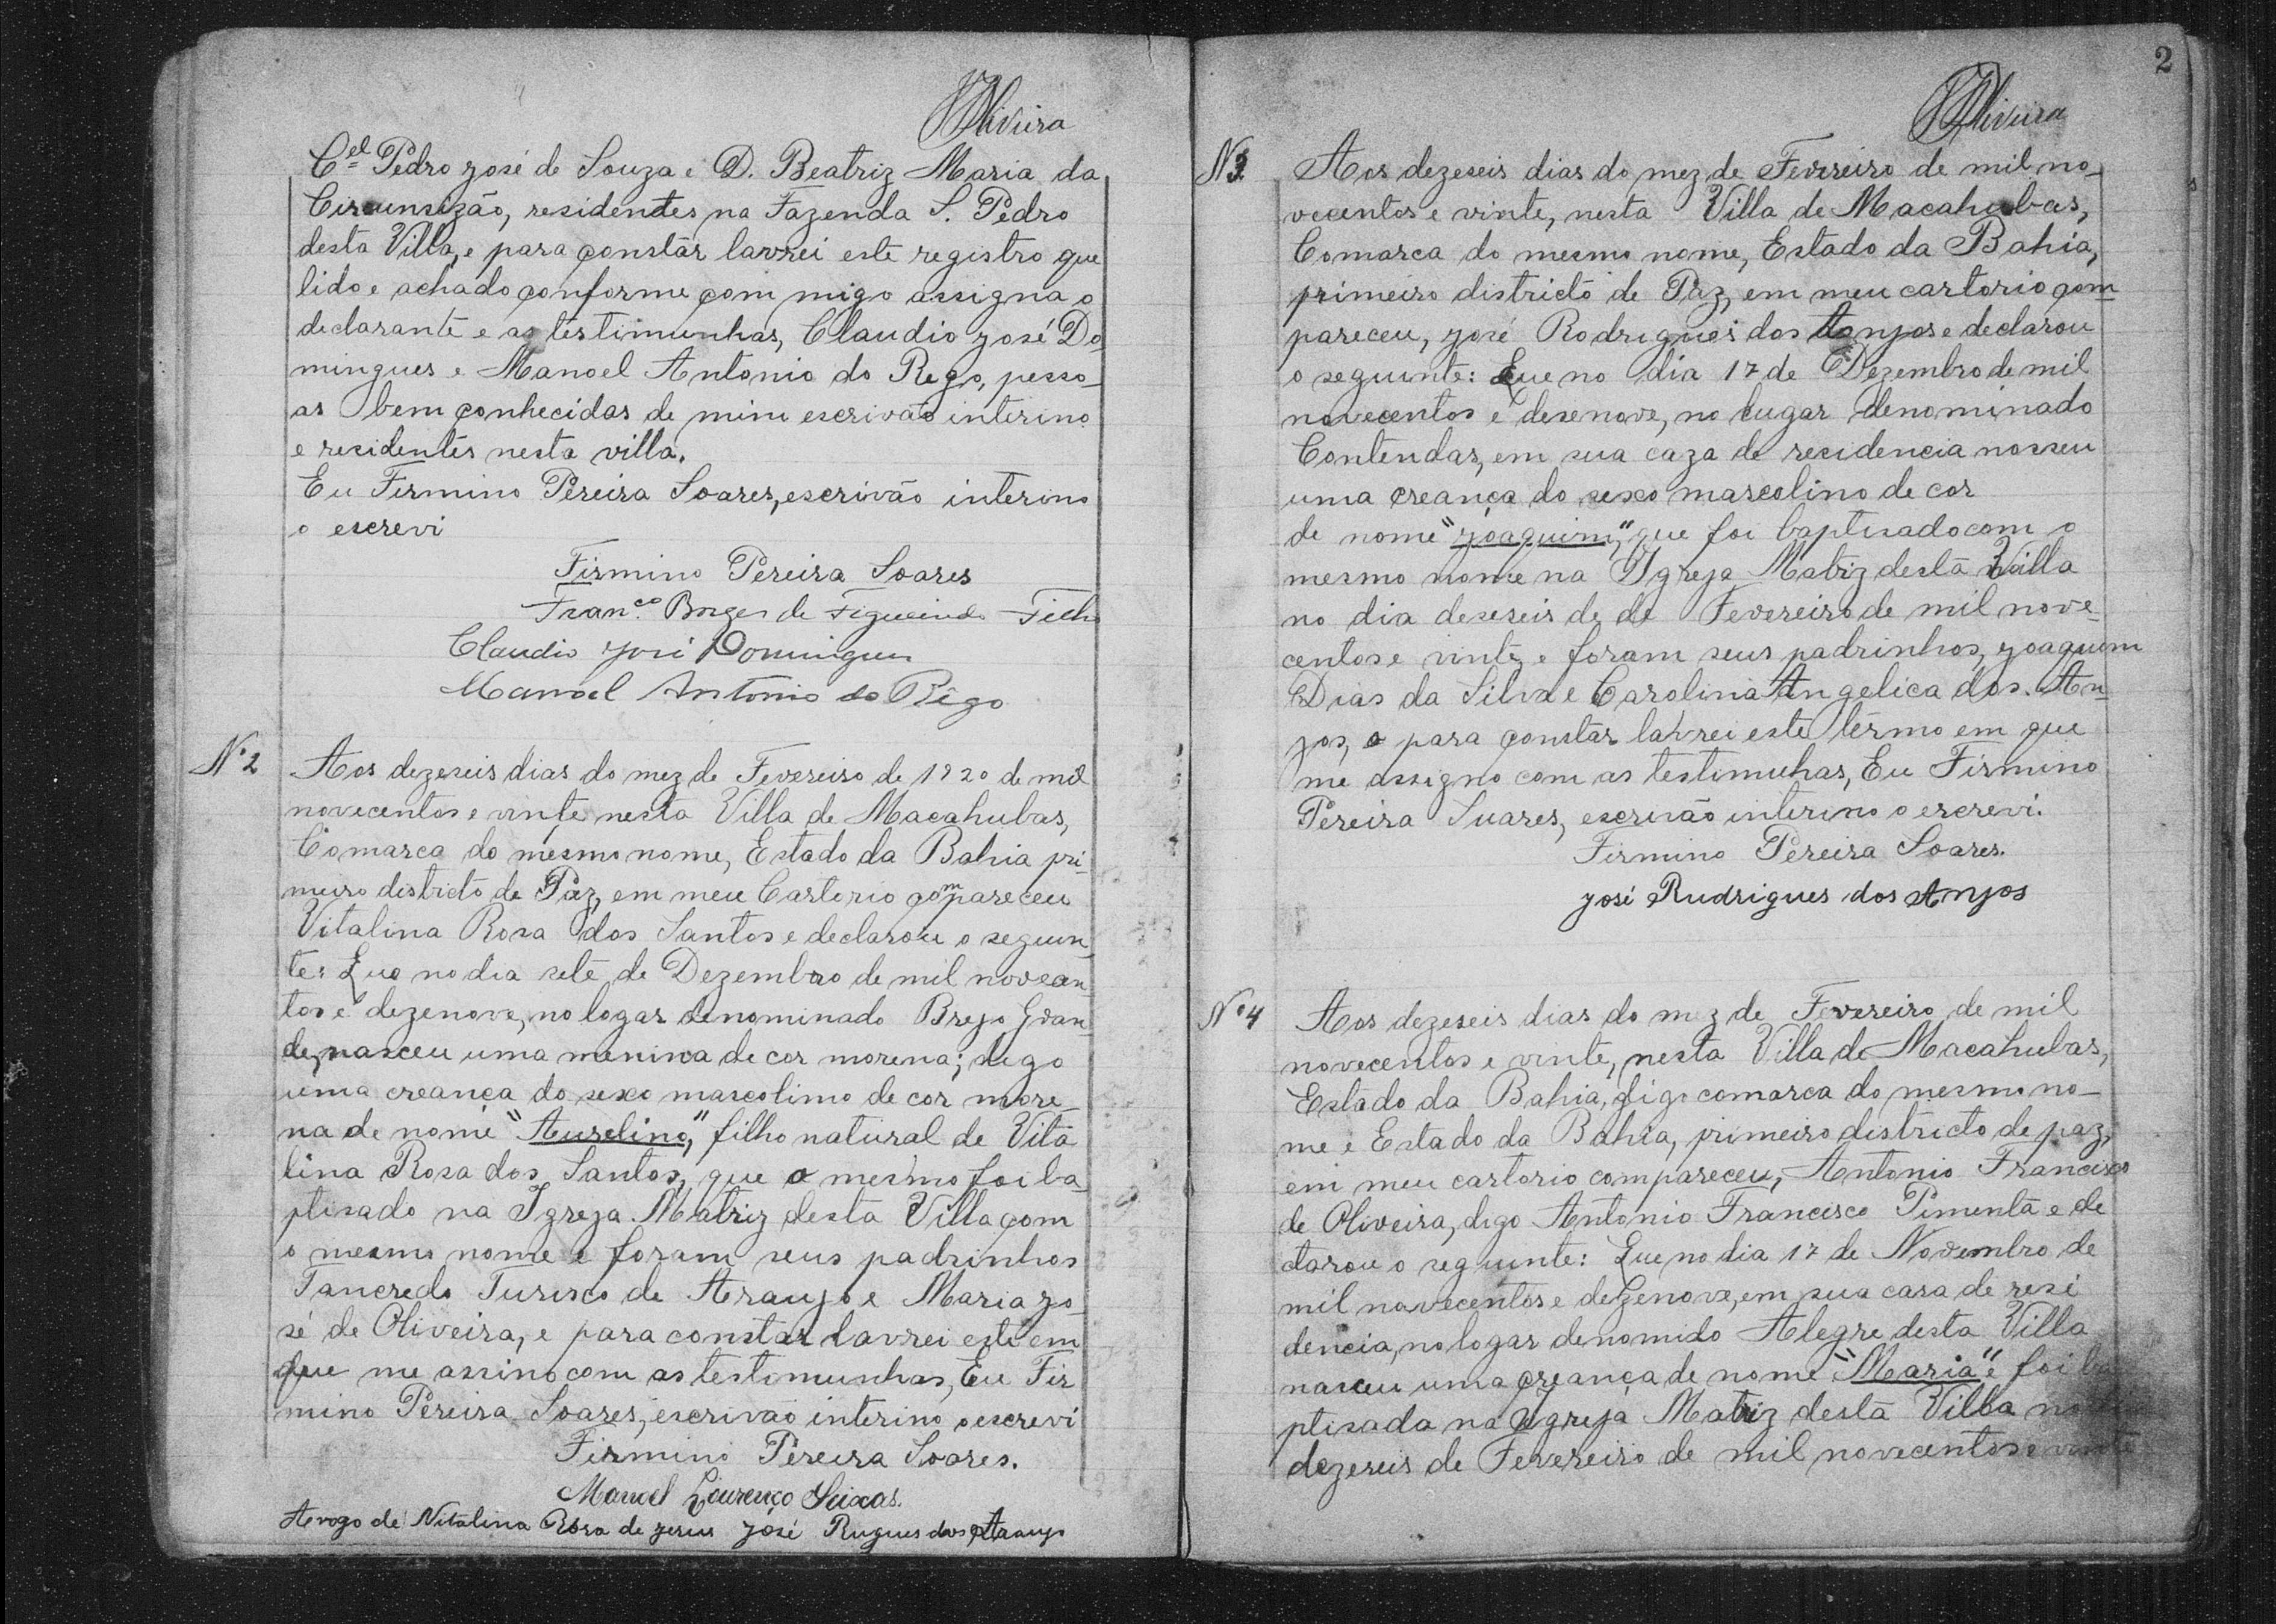 Oliveira
Cel Pedro José de Souza e D. Beatriz Maria da
Circunsizão, residentes na Fazenda S. Pedro
desta Villa, e para constar lavrei este registro que
lido e achado conforme com migo assigna o
declarante e as testimunhas, Claudio José Do-
mingues e Manoel Antonio do Rego, pesso-
as bem conhecidas de mim escrivão interino
e residentes nesta villa.
Eu Firmino Pereira Soares, escrivão interino
o escrevi
Firmino Pereira Soares
Franco. Borges de Figueiredo Filho
Claudio José Domingues
Manoel Antonio do Rêgo
Nº 2
Aos dezeseis dias do mez de Fevereiro de 1920 de mil
novecentos e vinte nesta Villa de Macahubas,
Comarca do mesmo nome, Estado da Bahia pri-
meiro districto de Paz, em meu Cartorio compareceu
Vitalina Rosa dos Santos e declarou o seguin
te: Que no dia sete de Dezembro de mil novecen
tos e dezenove, no logar denominado Brejo Gran
de, nasceu uma menina de cor morena; digo
uma creança do sexo mascolimo de cor more
na de nome "Aurelino," filho natural de Vita
lina Rosa dos Santos, que o mesmo foi ba
ptisado na Igreja Matriz desta Villa com
o mesmo nome e foram seus padrinhos
Tancredo Turisco de Araujo e Maria Jo
sé de Oliveira, e para constar lavrei este em
que me assino com as testimunhas, Eu Fir
mino Pereira Soares, escrivão interino o escrevi
Firmino Pereira Soares.
Manoel Lourenço Seixas.
Arogo de Vitalina Rosa de Jesus José Rugues dos
2
Oliveira
N 3
Aos dezeseis dias do mez de Fevereiro de mil no-
vecentos e vinte, nesta Villa de Macahubas,
Comarca do mesmo nome, Estado da Bahia,
primeiro districto de Paz, em meu cartorio com
pareceu, José Rodrigues dos Anjos e declarou
o seguinte: Que no dia 17 de Dezembro de mil
novecentos e desenove, no lugar denominado
Contendas, em sua caza de residencia nosseu
uma creança do sexo mascolino de cor
de nome "Joaquim," que foi baptisado com o
mesmo nome na Igreja Matriz desta Villa
no dia deseseis de de Fevereiro de mil nove-
centos e vinte e foram seus padrinhos, Joaquim
Dias da Silva e Carolina Angelica dos An-
jos, e para constar lavrei este têrmo em que
me assigno com as testimuhas, Eu Firmino
Pereira Suares, escrivão interino o escrevi.
Firmino Pereira Soares.
José Rudrigues dos Anjos
Nº 4
Aos dezeseis dias do mez de Fevereiro de mil
novecentos e vinte, nesta Villa de Macahubas,
Estado da Bahia, digo comarca do mesmo no-
me e Estado da Bahia, primeiro districto de paz,
em meu cartorio compareceu, Antonio Francisco
de Oliveira, digo Antonio Francisco Pimenta e de
clarou o seguinte: Que no dia 17 de Novembro de
mil novecentos e dezenove, em sua casa de resi
dencia, no logar denomido Alegre desta Villa
nasceu uma creança de nome "Maria" e foi ba
ptisada na Igreja Matriz desta Villa no dia
dezeseis de Fevereiro de mil novecentos e vinte